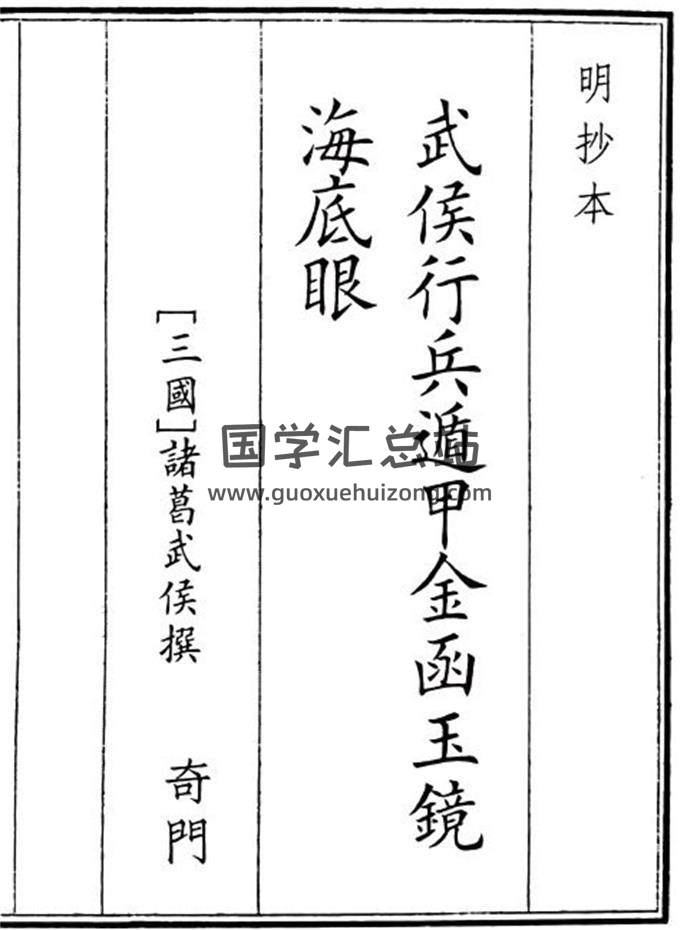 明抄本
武侯行兵遁甲金函玉鏡
海底眼
[三國]諸葛武侯撰
奇門
国学汇总站
www.guoxuehuizong.com